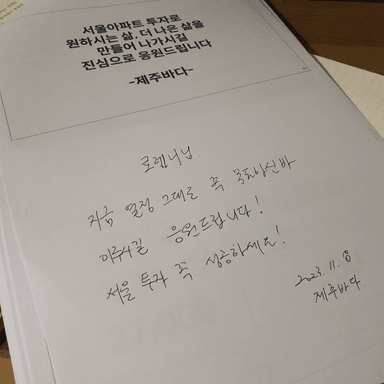 서울아파트 투자로
원하시는 삶, 더 나은 삶을
만들어 나가시길
진심으로 응원드립니다
-제주바다-
로렘니님
지금 열정 그대로 꼭 목표하신바
이루시길 응원드립니다!
서울 투자 꼭 성공하세요!
2023. 11. 18
제주바다